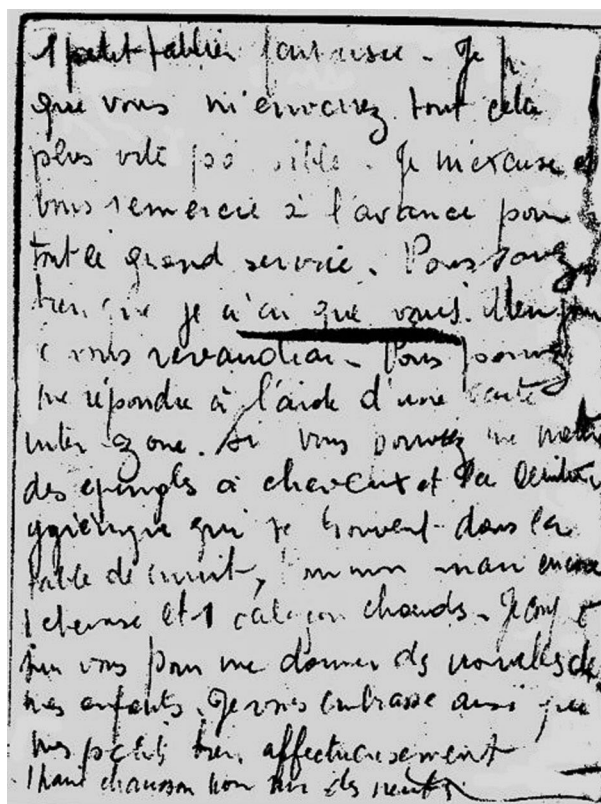 1 petit tablier fantaisie. Je p
que vous m'envoriez tout cela
plus vite possible. Je m'excuse et
vous remercie à l'avance pour
tout ce grand service. Vous savez
bien que je n'ai que vous. Mon
vous revaudrai. Vous pouvez
me répondre à l'aide d'une carte
inter zone. Si vous pouvez me mettre
des épingles à cheveux et la
ygiènique qui se trouvent dans la
table de nuit, mon mari encore
1 chemise et 1 caleçon chauds. Je compte
sur vous pour me donner des nouvelles de
mes enfants. Je vous embrasse ainsi que
mes petits bien affectueusement
1 paire chausson non des neufs